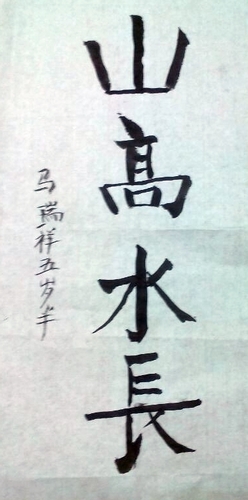 山髙水長
马瑞祥五岁半